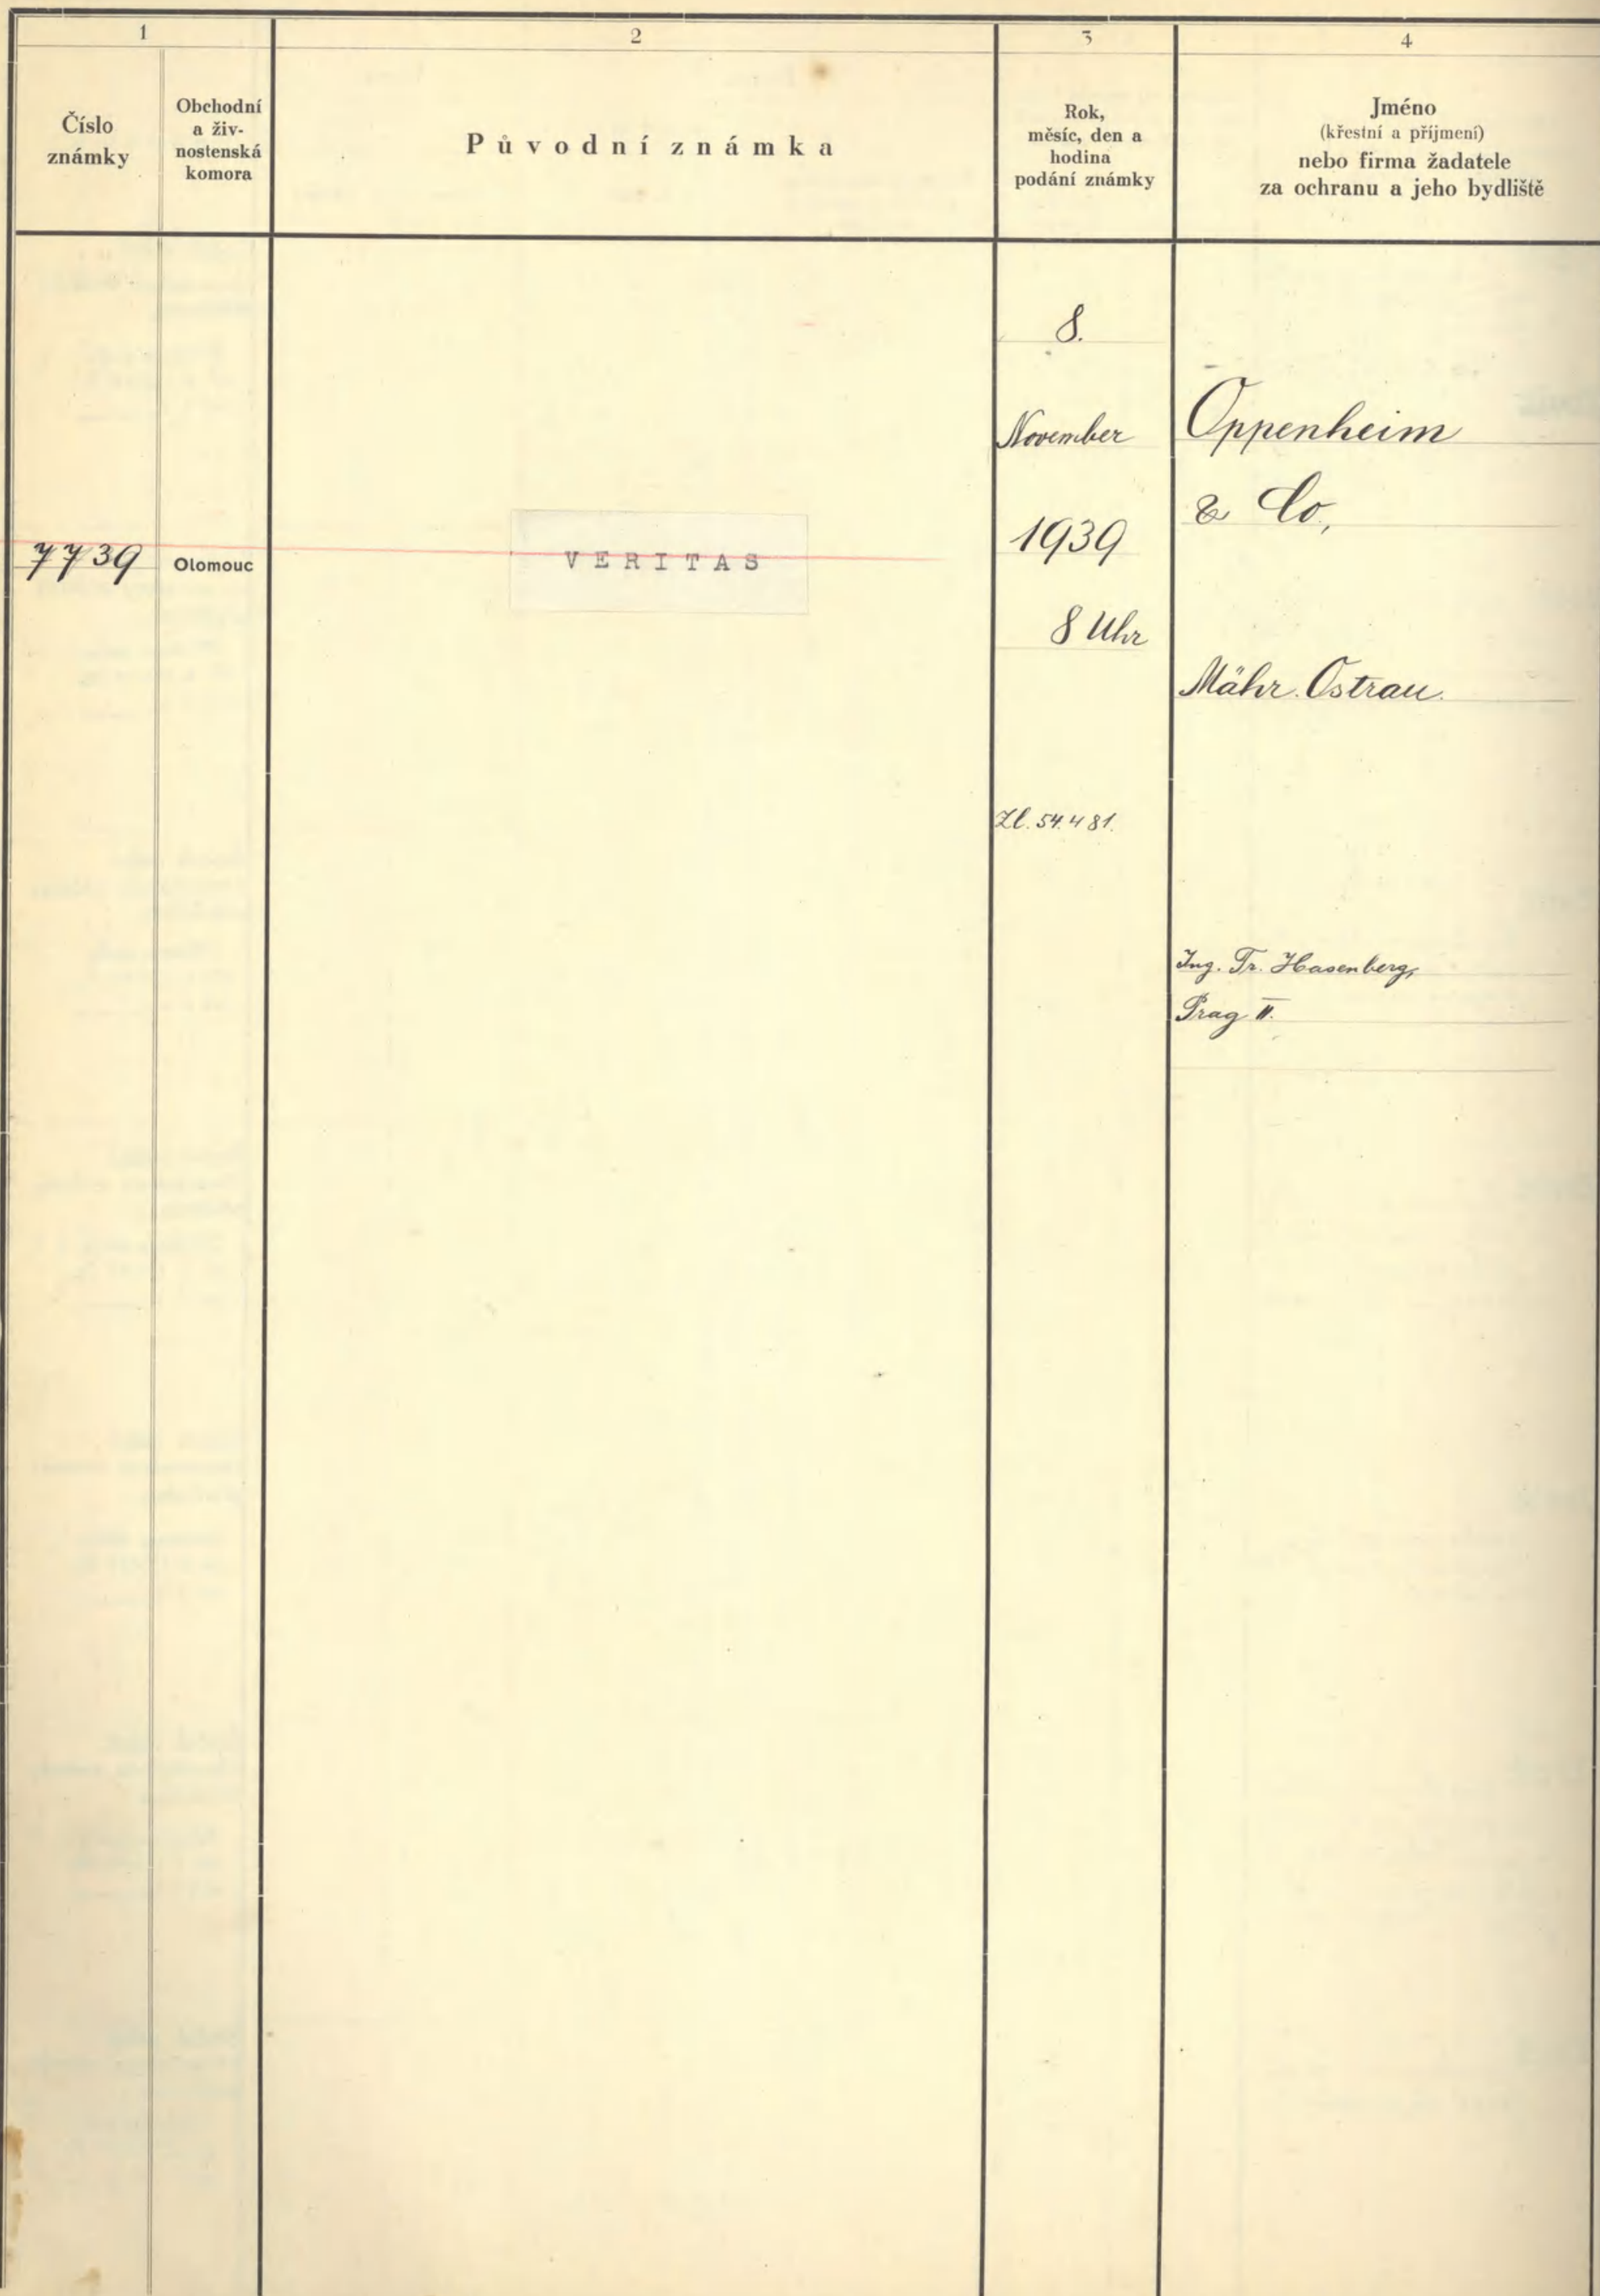 1
2
3
4
Číslo
známky
Obchodní
a živ-
nostenská
komora
Původní známka
Rok,
měsíc, den a
hodina
podání známky
Jméno
(křestní a příjmení)
nebo firma žadatele
za ochranu a jeho bydliště
7739
Olomouc
VERITAS
8.
November
1939
8 Uhr
Zl. 54.481.
Oppenheim
& Co.,
Mähr. Ostrau.
Ing. Tr. Hasenberg,
Prag II.